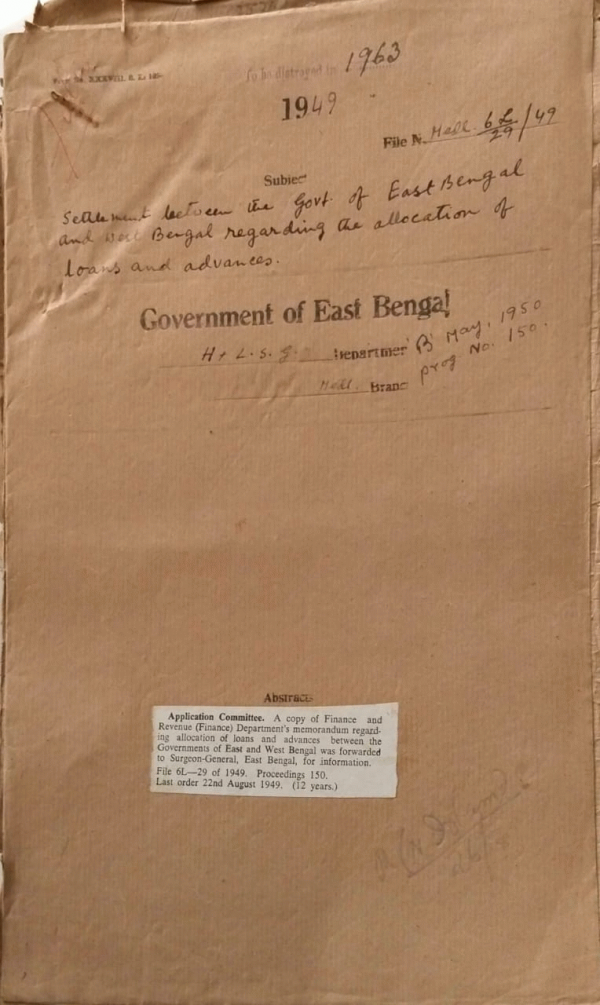 To be distroyed in 1963
1949
File N. Medl. 6L/29/49
Subjec
Settlement between the Govt. of East Bengal
and West Bengal regarding the allocation of
loans and advances.
Government of East Bengal
H & L. S. G. Departmen 'B' May, 1950
Medl. Branc prog No. 150.
Abstract
Application Committee. A copy of Finance and
Revenue (Finance) Department's memorandum regard-
ing allocation of loans and advances between the
Governments of East and West Bengal was forwarded
to Surgeon-General, East Bengal, for information.
File 6L—29 of 1949. Proceedings 150.
Last order 22nd August 1949. (12 years.)